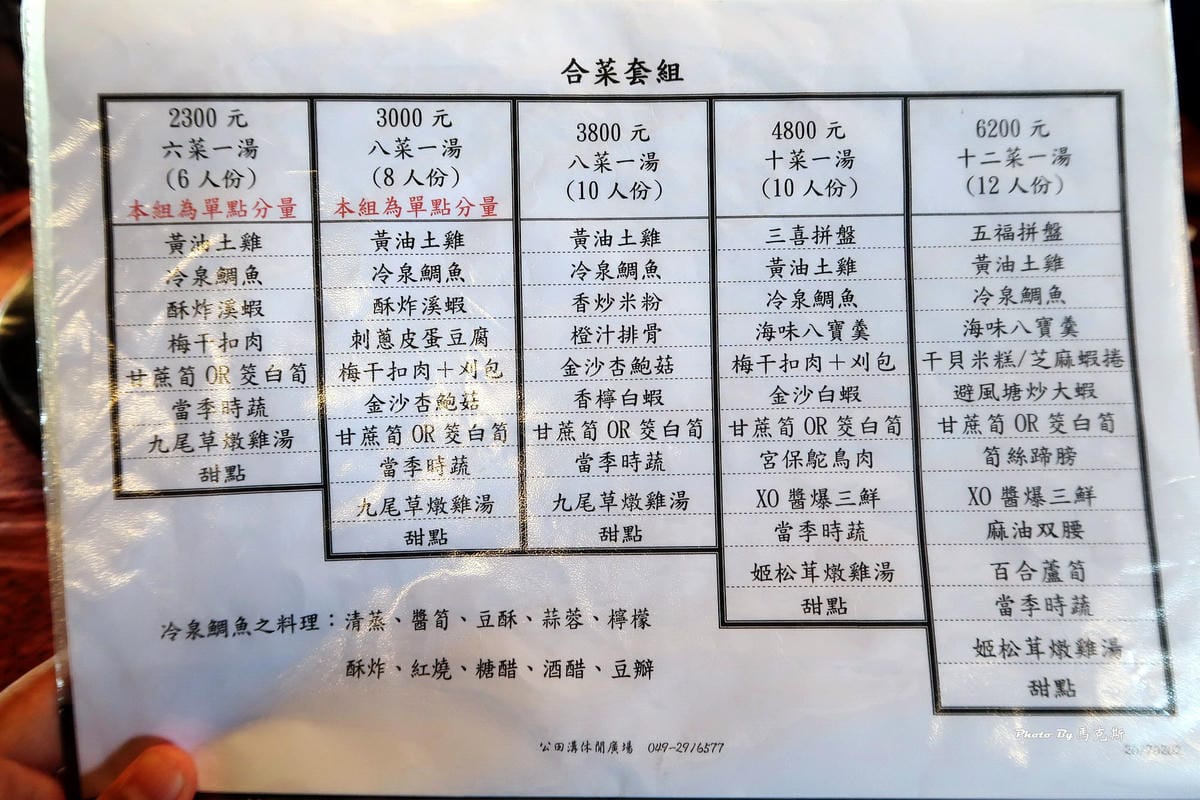 合菜套組
2300 元
六菜一湯
(6 人份)
本組為單點分量
黃油土雞
冷泉鯛魚
酥炸溪蝦
梅干扣肉
甘蔗筍 OR 筊白筍
當季時蔬
九尾草燉雞湯
甜點
3000 元
八菜一湯
(8 人份)
本組為單點分量
黃油土雞
冷泉鯛魚
酥炸溪蝦
刺蔥皮蛋豆腐
梅干扣肉+刈包
金沙杏鮑菇
甘蔗筍 OR 筊白筍
當季時蔬
九尾草燉雞湯
甜點
3800 元
八菜一湯
(10 人份)
黃油土雞
冷泉鯛魚
香炒米粉
橙汁排骨
金沙杏鮑菇
香檸白蝦
甘蔗筍 OR 筊白筍
當季時蔬
九尾草燉雞湯
甜點
4800 元
十菜一湯
(10 人份)
三喜拼盤
黃油土雞
冷泉鯛魚
海味八寶羹
梅干扣肉+刈包
金沙白蝦
甘蔗筍 OR 筊白筍
宮保鴕鳥肉
XO 醬爆三鮮
當季時蔬
姬松茸燉雞湯
甜點
6200 元
十二菜一湯
(12 人份)
五福拼盤
黃油土雞
冷泉鯛魚
海味八寶羹
干貝米糕/芝麻蝦捲
避風塘炒大蝦
甘蔗筍 OR 筊白筍
筍絲蹄膀
XO 醬爆三鮮
麻油双腰
百合蘆筍
當季時蔬
姬松茸燉雞湯
甜點
冷泉鯛魚之料理：清蒸、醬筍、豆酥、蒜蓉、檸檬
酥炸、紅燒、糖醋、酒醋、豆瓣
公田溝休閒廣場 049-2916577
Photo By 馬克斯